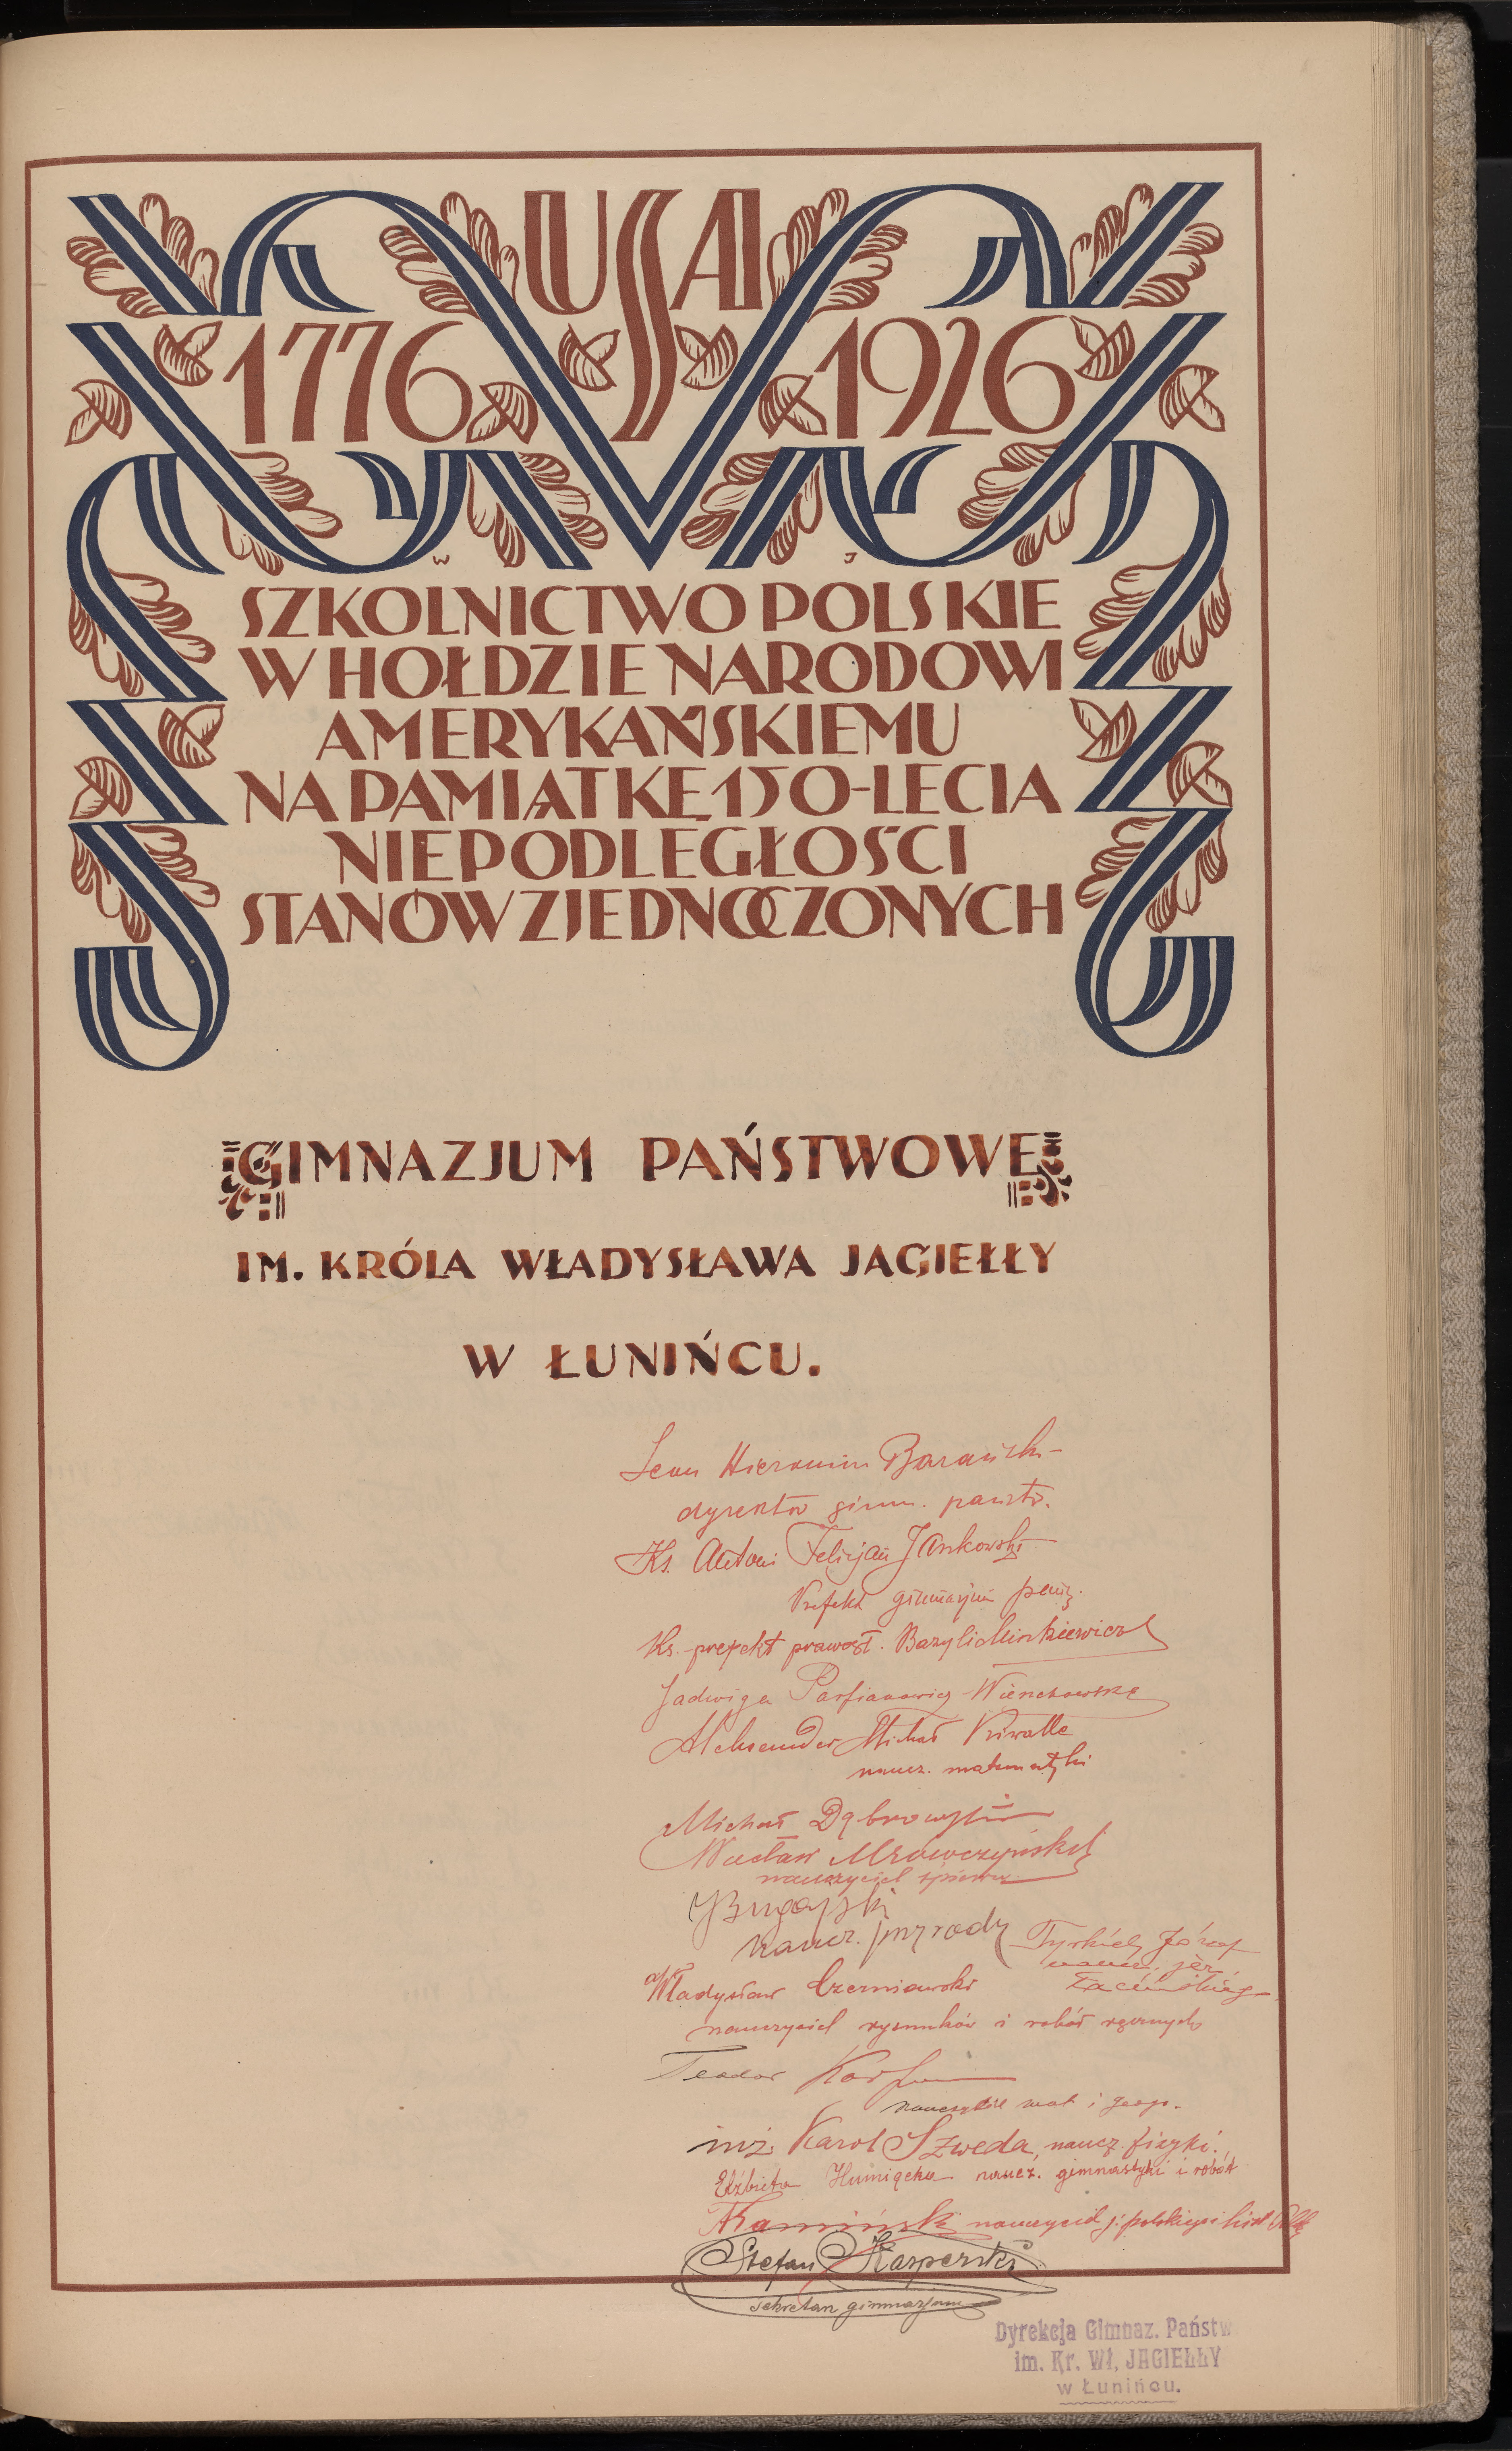 USA
1776 1926
W J
SZKOLNICTWO POLSKIE
W HOŁDZIE NARODOWI
AMERYKAŃSKIEMU
NA PAMIĄTKĘ 150-LECIA
NIEPODLEGŁOŚCI
STANÓW ZJEDNOCZONYCH
GIMNAZJUM PAŃSTWOWE
IM. KRÓLA WŁADYSŁAWA JAGIEŁŁY
W ŁUNIŃCU.
Leon Hieronim Barański
dyrektor gimn. państw.
Ks. Antoni Felicjan Jankowski
Prefekt gimnazjum
Ks. prefekt prawosł. Bazyli Minkiewicz
Jadwiga Parfianowicz
Aleksander Michał
naucz. matematyki
Michał Dąbrowski
Wacław Mrówczyński
nauczyciel śpiewu
Bugajski
naucz. przyrody
Józef
naucz. jęz.
Łacińskiego
Władysław Czerniawski
nauczyciel rysunków i robót ręcznych
Teodor
nauczyciel mat. i geogr.
inż. Karol Szweda, naucz. fizyki.
Elżbieta Humięcka naucz. gimnastyki i robót
Kamiński nauczyciel j. polskiego i hist.
Stefan Kasperski
sekretarz gimnazjum
Dyrekcja Gimnaz. Państw
im. Kr. Wł. JAGIEŁŁY
w Łunińcu.